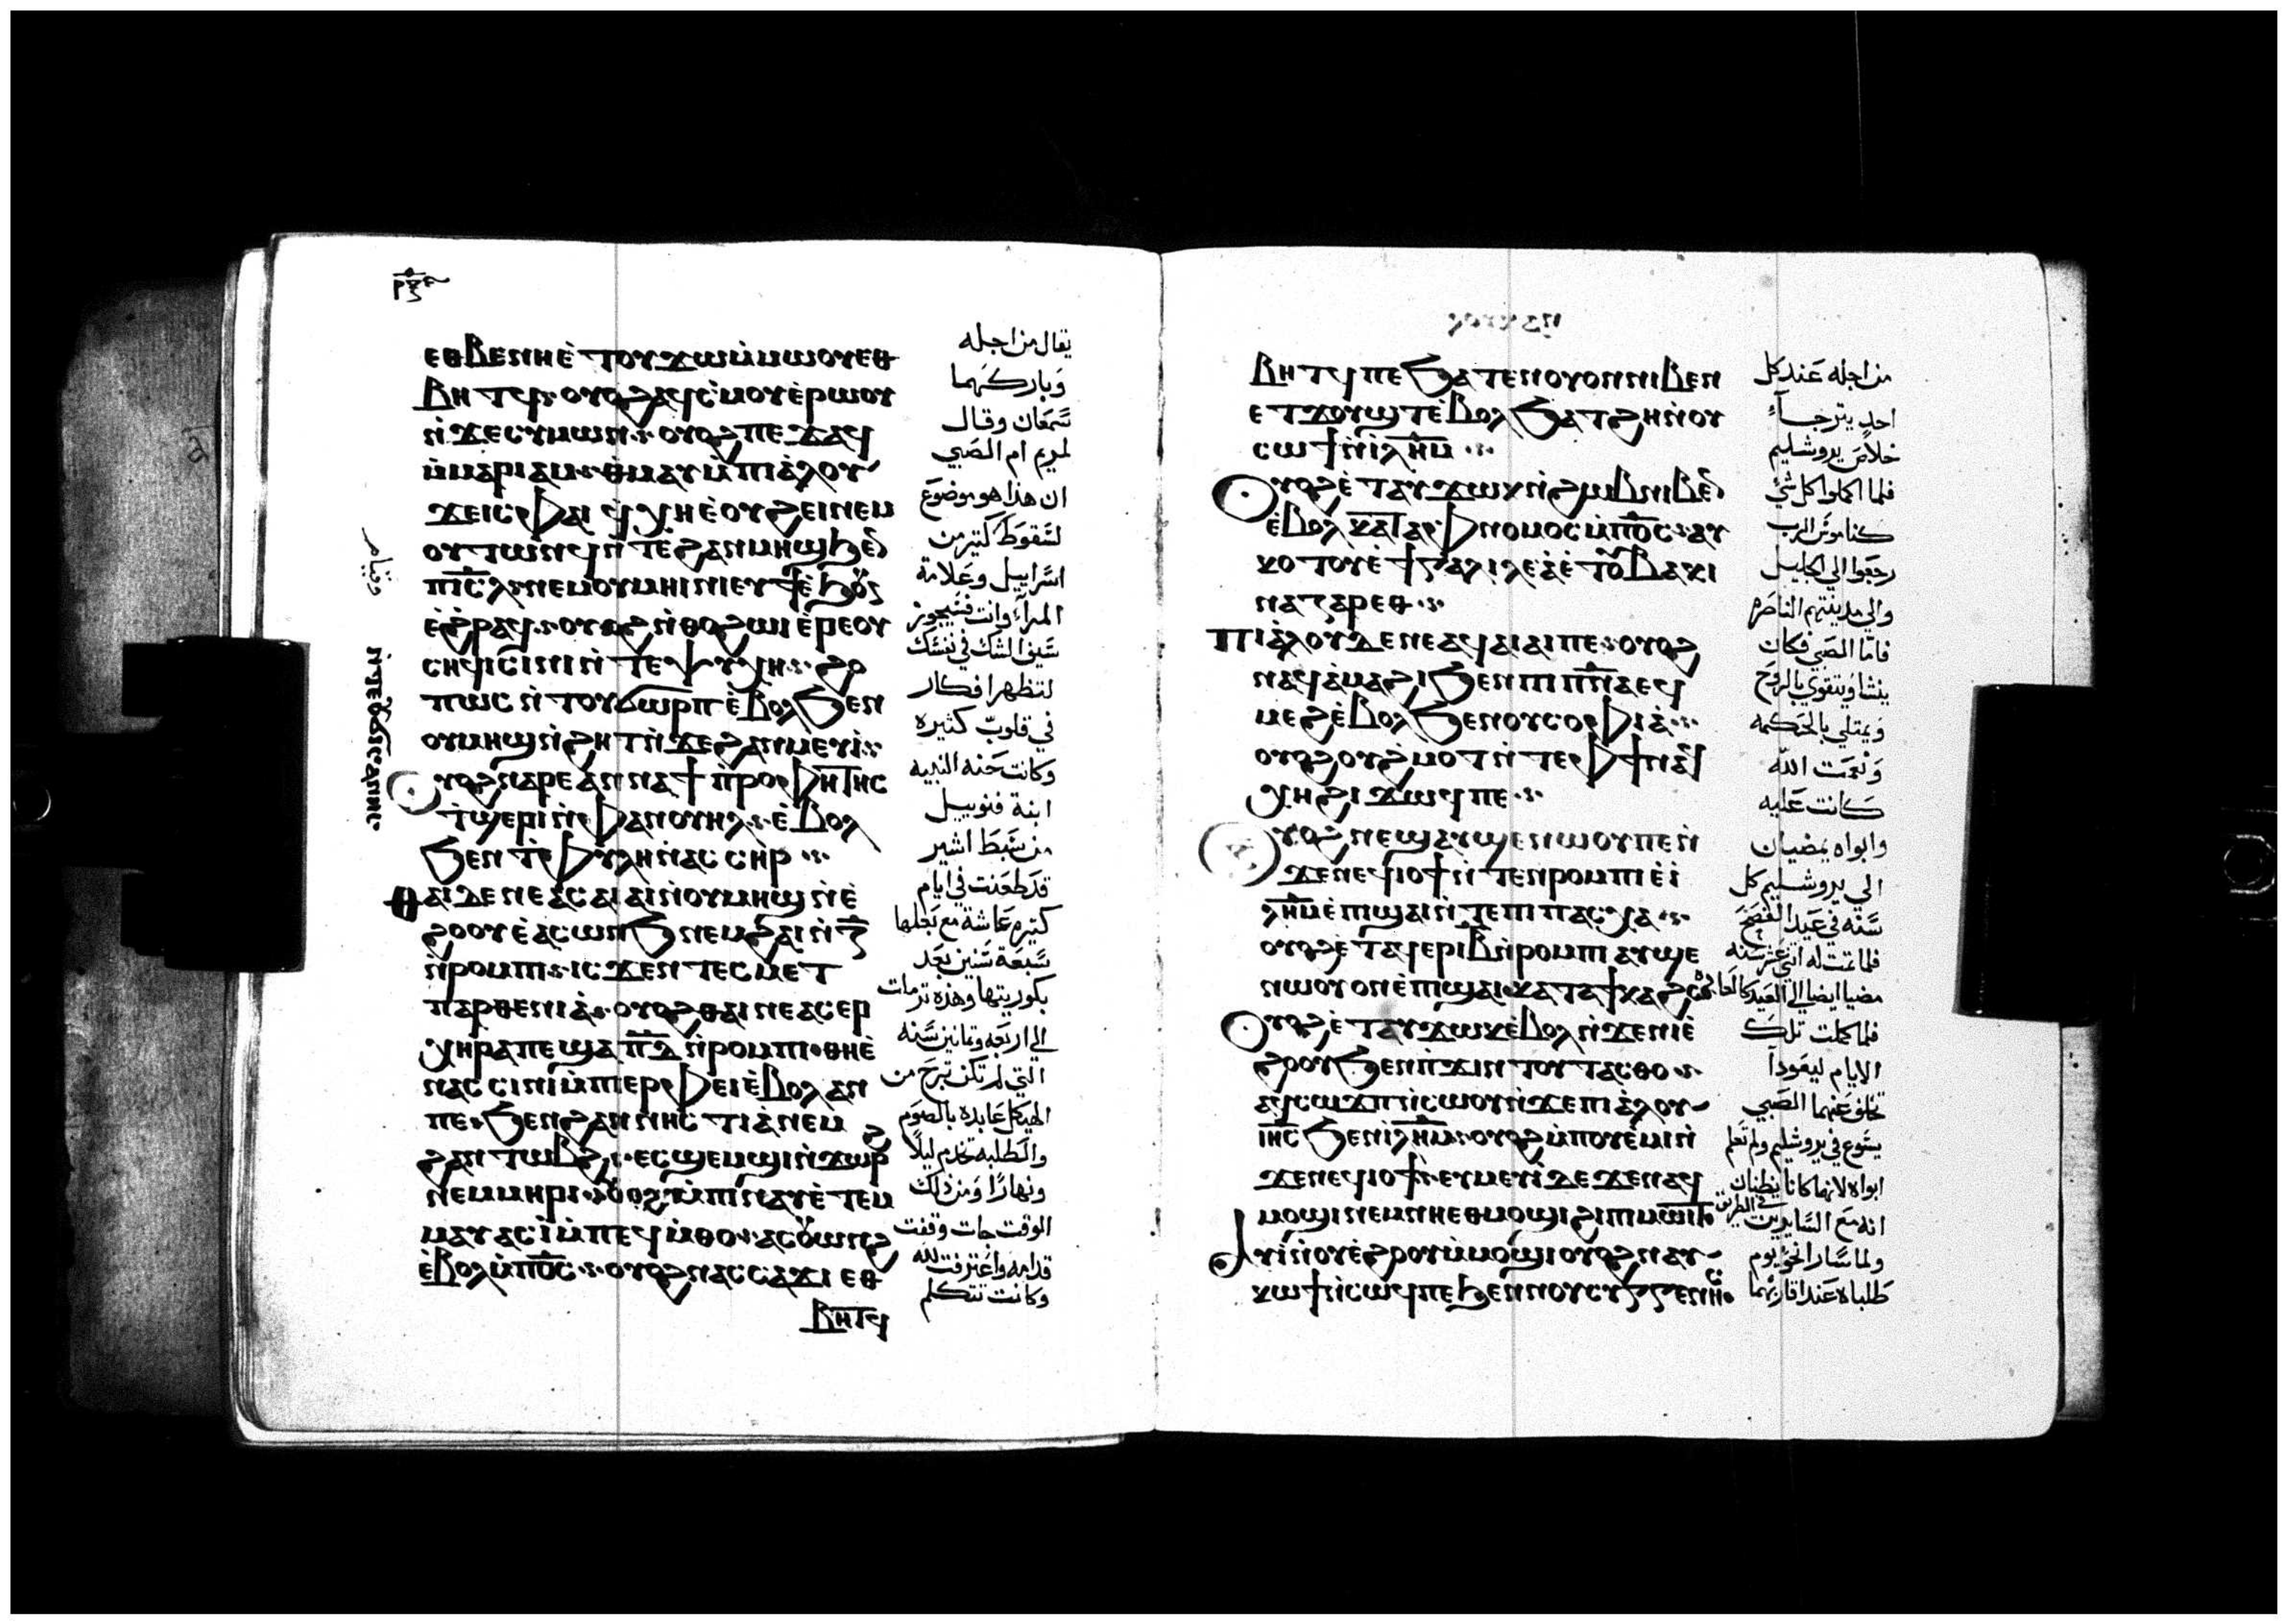 ⲣⲝⲍ
ⲉⲑⲃⲉⲛⲏⲉ̀ⲧⲟⲩϫⲱⲙ̀ⲙⲱⲟⲩⲉⲑ
ⲃⲏⲧϥ· ⲟⲩⲟϩⲁϥⲥ̀ⲙⲟⲩⲉ̀ⲣⲱⲟⲩ
ⲛ̀ϫⲉⲥⲩⲙⲱⲛ· ⲟⲩⲟϩⲡⲉϫⲁϥ
ⲙ̀ⲙⲁⲣⲓⲁⲙ· ⲑⲙⲁⲩⲙ̀ⲡⲓⲁ̀ⲗⲟⲩ
ϫⲉⲓⲥⲫⲁⲓ ϥ̀ⲭⲏⲉ̀ⲟⲩϩⲉⲓⲛⲉⲙ
ⲟⲩⲧⲱⲛϥⲛ̀ⲧⲉϩⲁⲛⲙⲏϣϧⲉⲛ
ⲡⲓⲥ̅ⲗ̅ ⲛⲉⲙⲟⲩⲙⲏⲓⲛⲓⲉⲩϯⲉ̀ϧⲟⲩⲛ
ⲉ̀ϩ̀ⲣⲁϥ· ⲟⲩⲟϩⲛ̀ⲑⲟϩⲱⲓⲉ̀ⲣⲉⲟⲩ
ⲥⲏϥⲓⲥⲓⲛⲓⲛ̀ⲧⲉⲯⲩⲭⲏ· ϩⲟ
ⲡⲱⲥ ⲛ̀ⲧⲟⲩϭⲱⲣⲡⲉ̀ⲃⲟⲗϧⲉⲛ
ⲟⲩⲙⲏϣⲛ̀ϩⲏⲧⲛ̀ϫⲉϩⲁⲛⲙⲉⲩⲓ
ⲟⲩⲟϩⲛⲁⲣⲉⲁⲛⲛⲁϯⲡ̀ⲣⲟⲫⲏⲧⲏⲥ
ⲧ̀ϣⲉⲣⲓⲛ̀ⲫⲁⲛⲟⲩⲏⲗ· ⲉ̀ⲃⲟⲗ
ϧⲉⲛⲧ̀ⲫⲩⲗⲏⲛ̀ⲁⲥⲥⲏⲣ
ⲑⲁⲓⲇⲉⲛⲉⲁⲥⲁⲓⲁⲓⲛ̀ⲟⲩⲙⲏϣⲛ̀ⲉ̀
ϩⲟⲟⲩⲉ̀ⲁⲥⲱⲛϧⲛⲉⲙϩⲁⲓⲛ̀ⲍ̅
ⲛ̀ⲣⲟⲙⲡⲓ· ⲓⲥϫⲉⲛⲧⲉⲥⲙⲉⲧ
ⲡⲁⲣⲑⲉⲛⲓⲁ̀· ⲟⲩⲟϩⲑⲁⲓⲛⲉⲁⲥⲉⲣ
ⲭⲏⲣⲁⲡⲉϣⲁⲡ̅ⲇ̅ⲛ̀ⲣⲟⲙⲡⲓ· ⲑⲏⲉ̀
ⲛⲁⲥⲥⲓⲛⲓⲙ̀ⲡⲓⲉⲣⲫⲉⲓⲉ̀ⲃⲟⲗⲁⲛ
ⲡⲉ· ϧⲉⲛϩⲁⲛⲛⲏⲥⲧⲓⲁ̀ⲛⲉⲙ
ϩⲁⲛⲧⲱⲃϩ· ⲉⲥϣⲉⲙϣⲓⲛ̀ϫⲱⲣϩ
ⲛⲉⲙⲙⲏⲣⲓ· ⲟⲩⲟϩ ϯⲙ̀ⲡⲓⲛⲁⲩⲉ̀ⲧⲉⲙ
ⲙⲁⲩⲁⲥⲓ̀ⲙ̀ⲡⲉϥⲙ̀ⲑⲟ· ⲁⲥⲟⲩⲱⲛϩ
ⲉ̀ⲃⲟⲗⲙ̀ⲡ̅ⲟ̅ⲥ̅· ⲟⲩⲟϩⲛⲁⲥⲥⲁϫⲓⲉⲑ
ⲃⲏⲧϥ
يقال من اجله
وباركهما
سمعان وقال
لمريم ام الصبي
ان هذا هو موضوع
لسقوط كتير من
اسراييل وعلامة
المراء وانت فسيجوز
سيف الشك في نفسك
لتظهر افكار
في قلوب كثيره
وكانت حنه النبيه
ابنة فنوييل
من سبط اشير
قد طعنت في ايام
كتيره عاشة مع بعلها
سبعة سنين بعد
بكوريتها وهذه ترملت
الي اربعه وتمانين سنه
التي لم تكن تبرح من
الهيكل عابده بالصوم
والطلبه تخدم ليلا
ونهارا ومن ذلك
الوقت جات وقفت
قدامه واعترفت لله
وكانت تتكلم
وقيام
ⲃⲏⲧϥⲡⲉϧⲁⲧⲉⲛⲟⲩⲟⲛⲛⲓⲃⲉⲛ
ⲉⲧϫⲟⲩϣⲧⲉ̀ⲃⲟⲗϧⲁⲧϩⲏⲛ̀ⲟⲩ
ⲥⲱϯⲛ̀ⲓ̀ⲗ̅ⲏ̅ⲙ̅
ⲟⲩⲟϩⲉ̀ⲧⲁⲩϫⲱⲕⲛ̀ϩⲱⲃⲛⲓⲃⲉⲛ
ⲉ̀ⲃⲟⲗ ⲕⲁⲧⲁⲫⲛⲟⲙⲟⲥⲙ̀ⲡ̅ⲟ̅ⲥ̅· ⲁⲩ
ⲕⲟⲧⲟⲩⲉ̀ϯⲅⲁⲗⲓⲗⲉⲁ̀ⲉ̀ⲧⲟⲩⲃⲁⲕⲓ
ⲛⲁⲍⲁⲣⲉⲑ
ⲡⲓⲁ̀ⲗⲟⲩⲇⲉⲛⲉⲁϥⲁⲓⲁⲓⲡⲉ· ⲟⲩⲟϩ
ⲛⲁϥⲁ̀ⲙⲁϩⲓϧⲉⲛⲡⲓⲡ̅ⲛ̅ⲁ̅ⲉϥ
ⲙⲉϩⲉ̀ⲃⲟⲗϧⲉⲛⲟⲩⲥⲟⲫⲓⲁ̀
ⲟⲩⲟϩⲟⲩϩ̀ⲙⲟⲧⲛ̀ⲧⲉⲫϯⲛⲁϥ
ⲭⲏϩⲓϫⲱϥⲡⲉ
ⲟⲩⲟϩⲛⲉϣⲁⲩϣⲉⲛⲱⲟⲩⲡⲉⲛ̀
ϫⲉⲛⲉϥⲓⲟϯⲛ̀ⲧⲉⲛⲣⲟⲙⲡⲓⲉ̀ⲓ̀
ⲗ̅ⲏ̅ⲙ̅ⲉ̀ⲡϣⲁⲓⲛ̀ⲧⲉⲡⲓⲡⲁⲥⲭⲁ
ⲟⲩⲟϩⲉ̀ⲧⲁϥⲉⲣⲓ̅ⲃ̅ⲛ̀ⲣⲟⲙⲡⲓⲁⲩϣⲉ
ⲛⲱⲟⲩⲟⲛⲉ̀ⲡϣⲁⲓ· ⲕⲁⲧⲁϯⲕⲁϩⲥ
ⲟⲩⲟϩⲉ̀ⲧⲁⲩϫⲱⲕⲉ̀ⲃⲟⲗⲛ̀ϫⲉⲛⲓⲉ̀
ϩⲟⲟⲩϧⲉⲛⲡ̀ϫⲓⲛⲧⲟⲩⲧⲁⲥⲑⲟ
ⲁϥⲥⲱϫⲡⲓⲥⲱⲟⲩⲛ̀ϫⲉⲡⲓⲁ̀ⲗⲟⲩ
ⲓ̅ⲏ̅ⲥ̅ϧⲉⲛⲓ̀ⲗ̅ⲏ̅ⲙ̅· ⲟⲩⲟϩⲙ̀ⲡⲟⲩⲉ̀ⲙⲓⲛ̀
ϫⲉⲛⲉϥⲓⲟϯ· ⲉⲩⲙⲉⲩⲓ̀ⲇⲉϫⲉⲛⲁϥ
ⲙⲟϣⲓⲛⲉⲙⲛⲏⲉⲑⲙⲟϣⲓϩⲓⲡⲓⲙⲱⲓⲧ
ⲁⲩⲓ̀ⲛ̀ⲟⲩⲉ̀ϩⲟⲟⲩⲙ̀ⲙⲟϣⲓⲟⲩⲟϩⲛⲁⲩ
ⲕⲱϯⲛ̀ⲥⲱϥⲡⲉϧⲉⲛⲛⲟⲩⲥⲩⲅⲅⲉⲛⲏⲥ
من اجله عند كل
احد يترجا
خلاص يروشليم
فلما اكملوا كل شي
كناموس الرب
رجعوا الي الجليل
والي مدينتهم الناصره
فاما الصبي فكان
ينشا ويتقوي بالروح
ويمتلي بالحكمه
ونعمت الله
كانت عليه
وابواه يمضيان
الي يروشليم كل
سنه في عيد الفصح
فلما تمت له اتني عشر سنه
مضيا ايضا الي العيد كالعاده
فلما كملت تلك
الايام ليعودا
تخلف عنهما الصبي
يسوع في يروشليم ولم تعلم
ابواه لانهما كانا يظنان
انه مع السايرين في الطريق
ولما سارا نحو يوم
طلباه عند اقاربهما